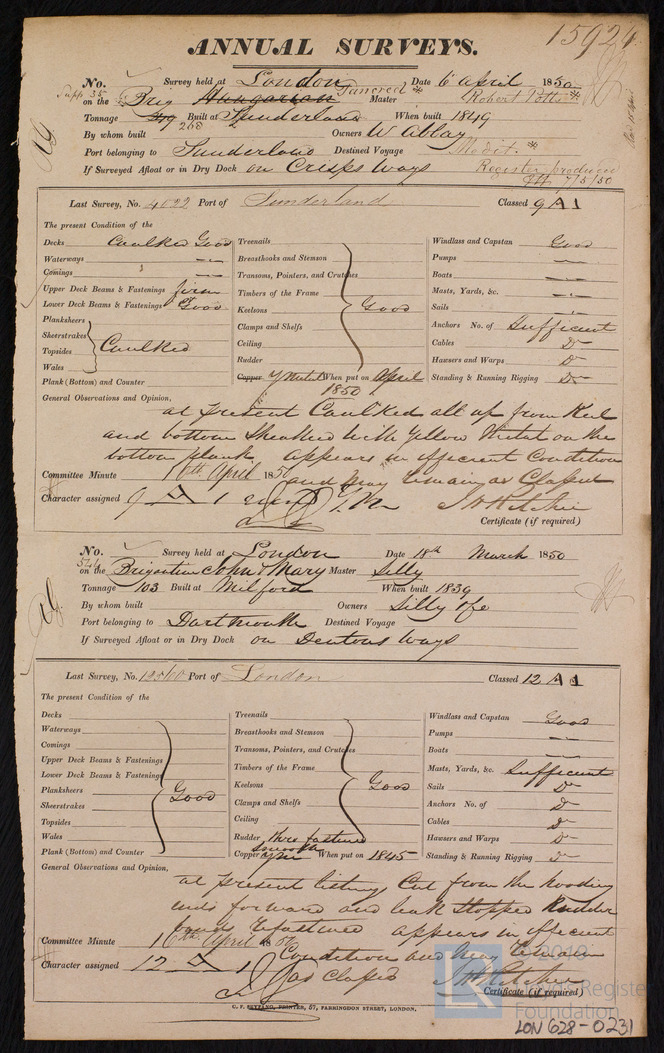 15924
ANNUAL SURVEYS.
No. Survey held at London Date 6 April 1850
on the Brig Hungarian Tancred * Master Robert Potts *
Tonnage 268 Built at Sunderland When built 1849
By whom built Owners W Ablay
Port belonging to Sunderland Destined Voyage Medit. *
If Surveyed Afloat or in Dry Dock on Crisps Ways Register produced
7/5/50
Last Survey, No. 4022 Port of Sunderland Classed 9 A 1
The present Condition of the
Decks Caulked Good Treenails Windlass and Capstan Good
Waterways Breasthooks and Stemson Pumps
Comings Transoms, Pointers, and Crutches Boats
Upper Deck Beams & Fastenings firm Timbers of the Frame Masts, Yards, &c.
Lower Deck Beams & Fastenings Good Keelsons Good Sails
Planksheers Clamps and Shelfs Anchors No. of Sufficient
Sheerstrakes Ceiling Cables Do
Topsides Caulked Rudder Hawsers and Warps Do
Wales Copper Y Metal When put on April 1850 Standing & Running Rigging Do
Plank (Bottom) and Counter
General Observations and Opinion,
at present Caulked all up from Keel
and bottom Sheathed with Yellow Metal on the
bottom plank appears in efficient Condition
Committee Minute 16th April 1850 and may remain as Classed
Character assigned 9 A 1
Certificate (if required)
No. Survey held at London Date 18th March 1850
on the Brigantine John & Mary Master Silly
Tonnage 103 Built at Milford When built 1839
By whom built Owners Silly & Co
Port belonging to Dartmouth Destined Voyage
If Surveyed Afloat or in Dry Dock on Dentons Ways
Last Survey, No. 12560 Port of London Classed 12 A 1
The present Condition of the
Decks Treenails Windlass and Capstan Good
Waterways Breasthooks and Stemson Pumps
Comings Transoms, Pointers, and Crutches Boats
Upper Deck Beams & Fastenings Timbers of the Frame Masts, Yards, &c. Sufficient
Lower Deck Beams & Fastenings Keelsons Good Sails Do
Planksheers Good Clamps and Shelfs Anchors No. of Do
Sheerstrakes Ceiling Cables Do
Topsides Rudder fastened Hawsers and Warps Do
Wales Copper When put on 1845 Standing & Running Rigging Do
Plank (Bottom) and Counter
General Observations and Opinion,
at present listing Cut from the hooding
ends forward and leak stopped Rudder
bands refastened appears in efficient
Committee Minute 16th April 1850 Condition and may remain
Character assigned 12 A 1 as Classed
Certificate (if required)
PRINTER, 57, FARRINGDON STREET, LONDON.
LR
© 2019
Lloyd's Register
Foundation
LON 628-0231